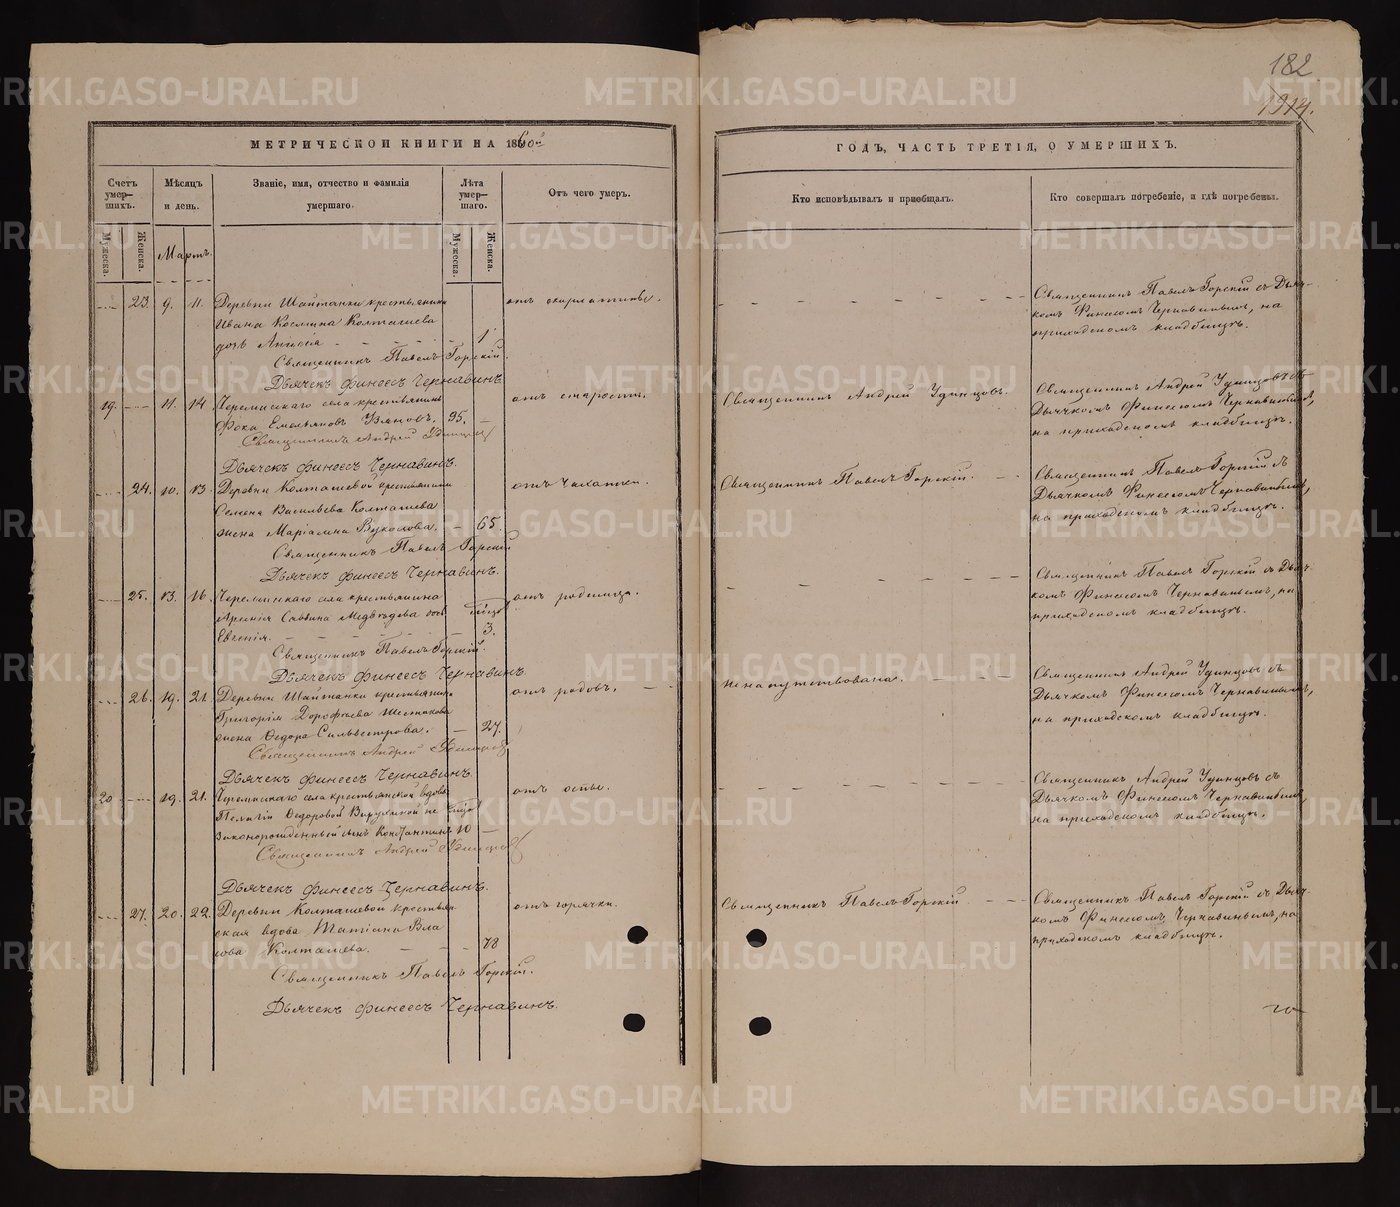 182
1914.
МЕТРИЧЕСКОЙ КНИГИ НА 1860й
Счетъ умер-шихъ.
Мужеска.
Женска.
Мѣсяцъ и день.
Званіе, имя, отчество и фамилія умершаго.
Лѣта умер-шаго.
Мужеска.
Женска.
Отъ чего умеръ.
ГОДЪ, ЧАСТЬ ТРЕТІЯ, О УМЕРШИХЪ.
Кто исповѣдывалъ и пріобщалъ.
Кто совершалъ погребеніе, и гдѣ погребены.
Мартъ.
23. 9. 11. Деревни Шайтанки крестьянина
Ивана Космина Колташева
дочь Анисья 1
отъ скарлатины.
Священникъ Павелъ Горскій съ Дьяч-
комъ Финеесомъ Чернавинымъ, на
приходскомъ кладбищѣ.
Священникъ Павелъ Горскій.
Дьячекъ Финеесъ Чернавинъ.
19. 11. 14. Черемисскаго села крестьянинъ
Фока Емельяновъ 95.
отъ старости.
Священникъ Андрей Удинцовъ.
Священникъ Андрей Удинцовъ съ
Дьячкомъ Финеесомъ Чернавинымъ,
на приходскомъ кладбищѣ.
Священникъ Андрей Удинцовъ
Дьячекъ Финеесъ Чернавинъ.
24. 10. 13. Деревни Колташевой крестьянина
Семена Васильева Колташева
жена Маріамна Вуколова. 65.
отъ чахотки.
Священникъ Павелъ Горскій.
Священникъ Павелъ Горскій съ
Дьячкомъ Финеесомъ Чернавинымъ,
на приходскомъ кладбищѣ.
Священникъ Павелъ Горскій
Дьячекъ Финеесъ Чернавинъ.
25. 13. 16. Черемисскаго села крестьянина
Арсенія Саввина Медвѣдева дочь
Евгенія. 3.
отъ родимца.
Священникъ Павелъ Горскій съ Дьяч-
комъ Финеесомъ Чернавинымъ, на
приходскомъ кладбищѣ.
Священникъ Павелъ Горскій.
Дьячекъ Финеесъ Чернавинъ.
26. 19. 21. Деревни Шайтанки крестьянина
Григорія Дорофеева
жена Ѳедора Сильвестрова. 27.
отъ родовъ.
не напутствована.
Священникъ Андрей Удинцовъ съ
Дьячкомъ Финеесомъ Чернавинымъ,
на приходскомъ кладбищѣ.
Священникъ Андрей Удинцовъ
Дьячекъ Финеесъ Чернавинъ.
20 19. 21. Черемисскаго села крестьянской вдовы
Пелагіи Ѳедоровой не
законорожденный сынъ Константинъ 10
отъ оспы.
Священникъ Андрей Удинцовъ съ
Дьячкомъ Финеесомъ Чернавинымъ,
на приходскомъ кладбищѣ.
Священникъ Андрей Удинцовъ
Дьячекъ Финеесъ Чернавинъ.
27. 20. 22. Деревни Колташевой крестьян
ская вдова Татіана Вла
сова Колташева. 78
отъ горячки.
Священникъ Павелъ Горскій
Священникъ Павелъ Горскій съ Дьяч-
комъ Финеесомъ Чернавинымъ, на
приходскомъ кладбищѣ.
Священникъ Павелъ Горскій.
Дьячекъ Финеесъ Чернавинъ.
METRIKI.GASO-URAL.RU